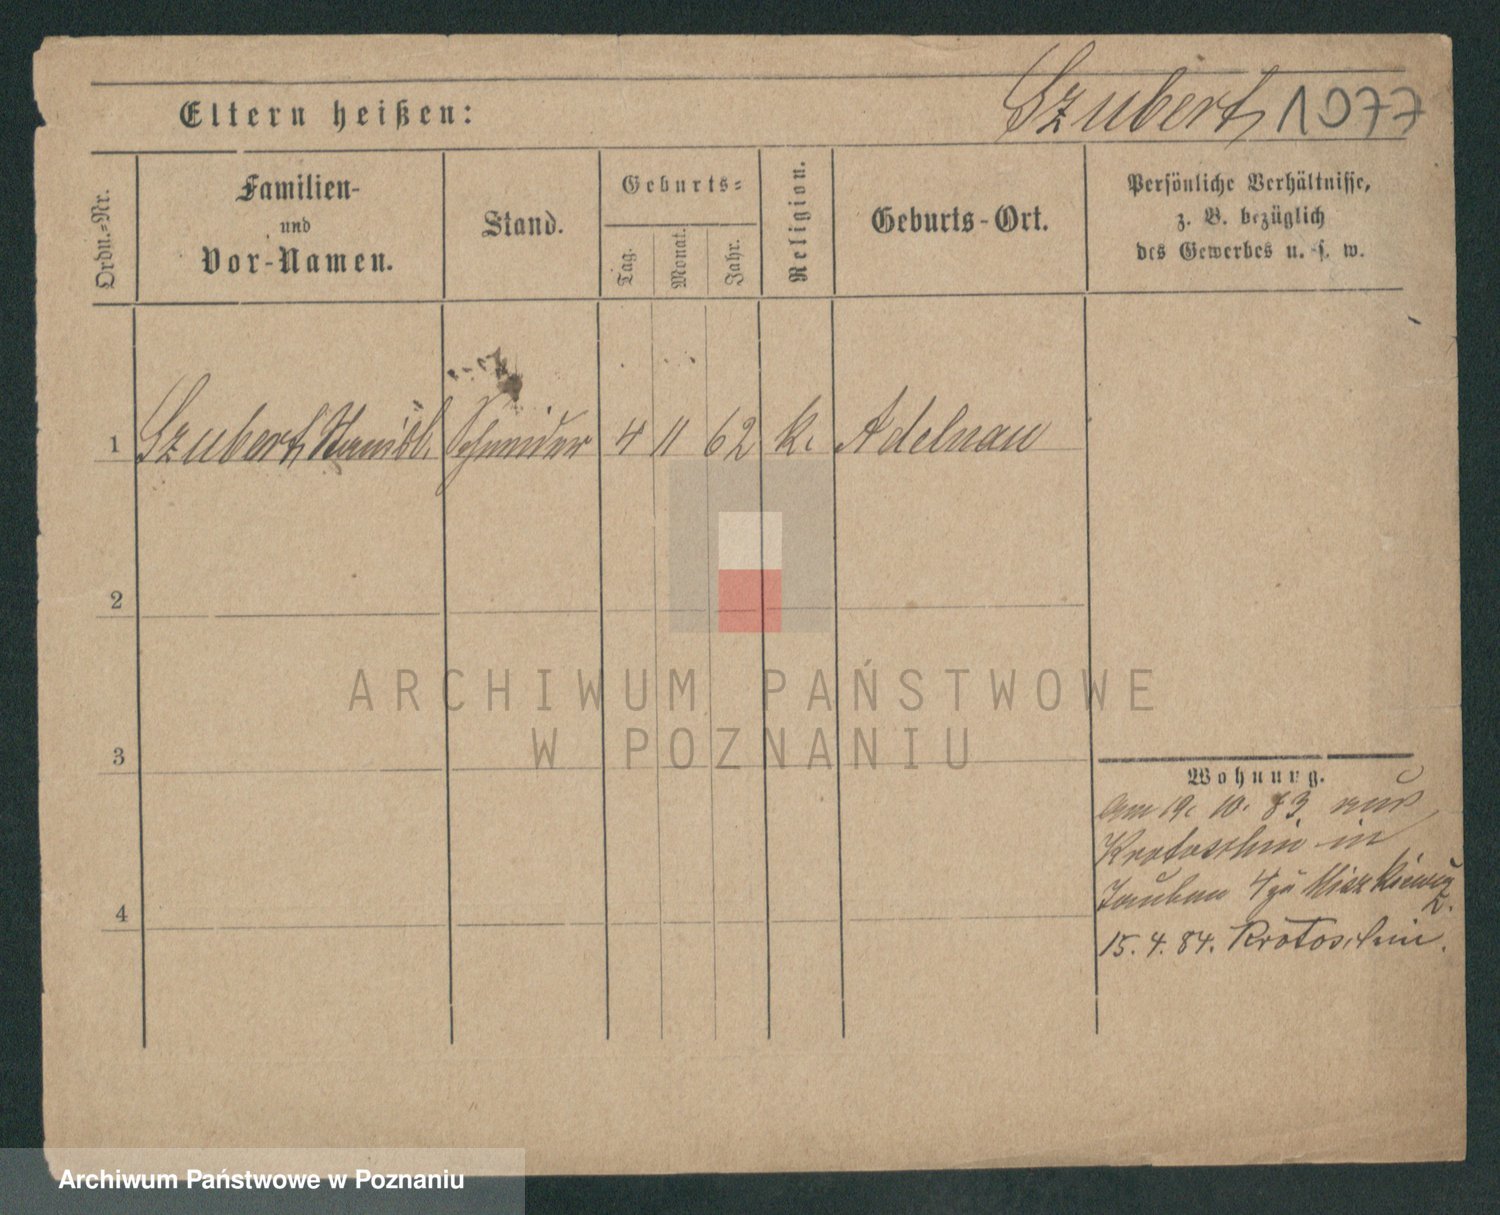 Eltern heißen:
Szubert 1977
Ordn.-Nr.
Familien-
und
Vor-Namen.
Stand.
Geburts-
Tag.
Monat.
Jahr.
Religion.
Geburts-Ort.
Persönliche Verhältnisse,
z. B. bezüglich
des Gewerbes u. s. w.
1 Szubert, Stanisl. Schneider 4 11 62 k. Adelnau
2
3
4
Wohnung.
Am 19. 10. 83 aus
Krotoschin in
4 zu
15. 4. 84. Krotoschin.
ARCHIWUM PAŃSTWOWE
W POZNANIU
Archiwum Państwowe w Poznaniu